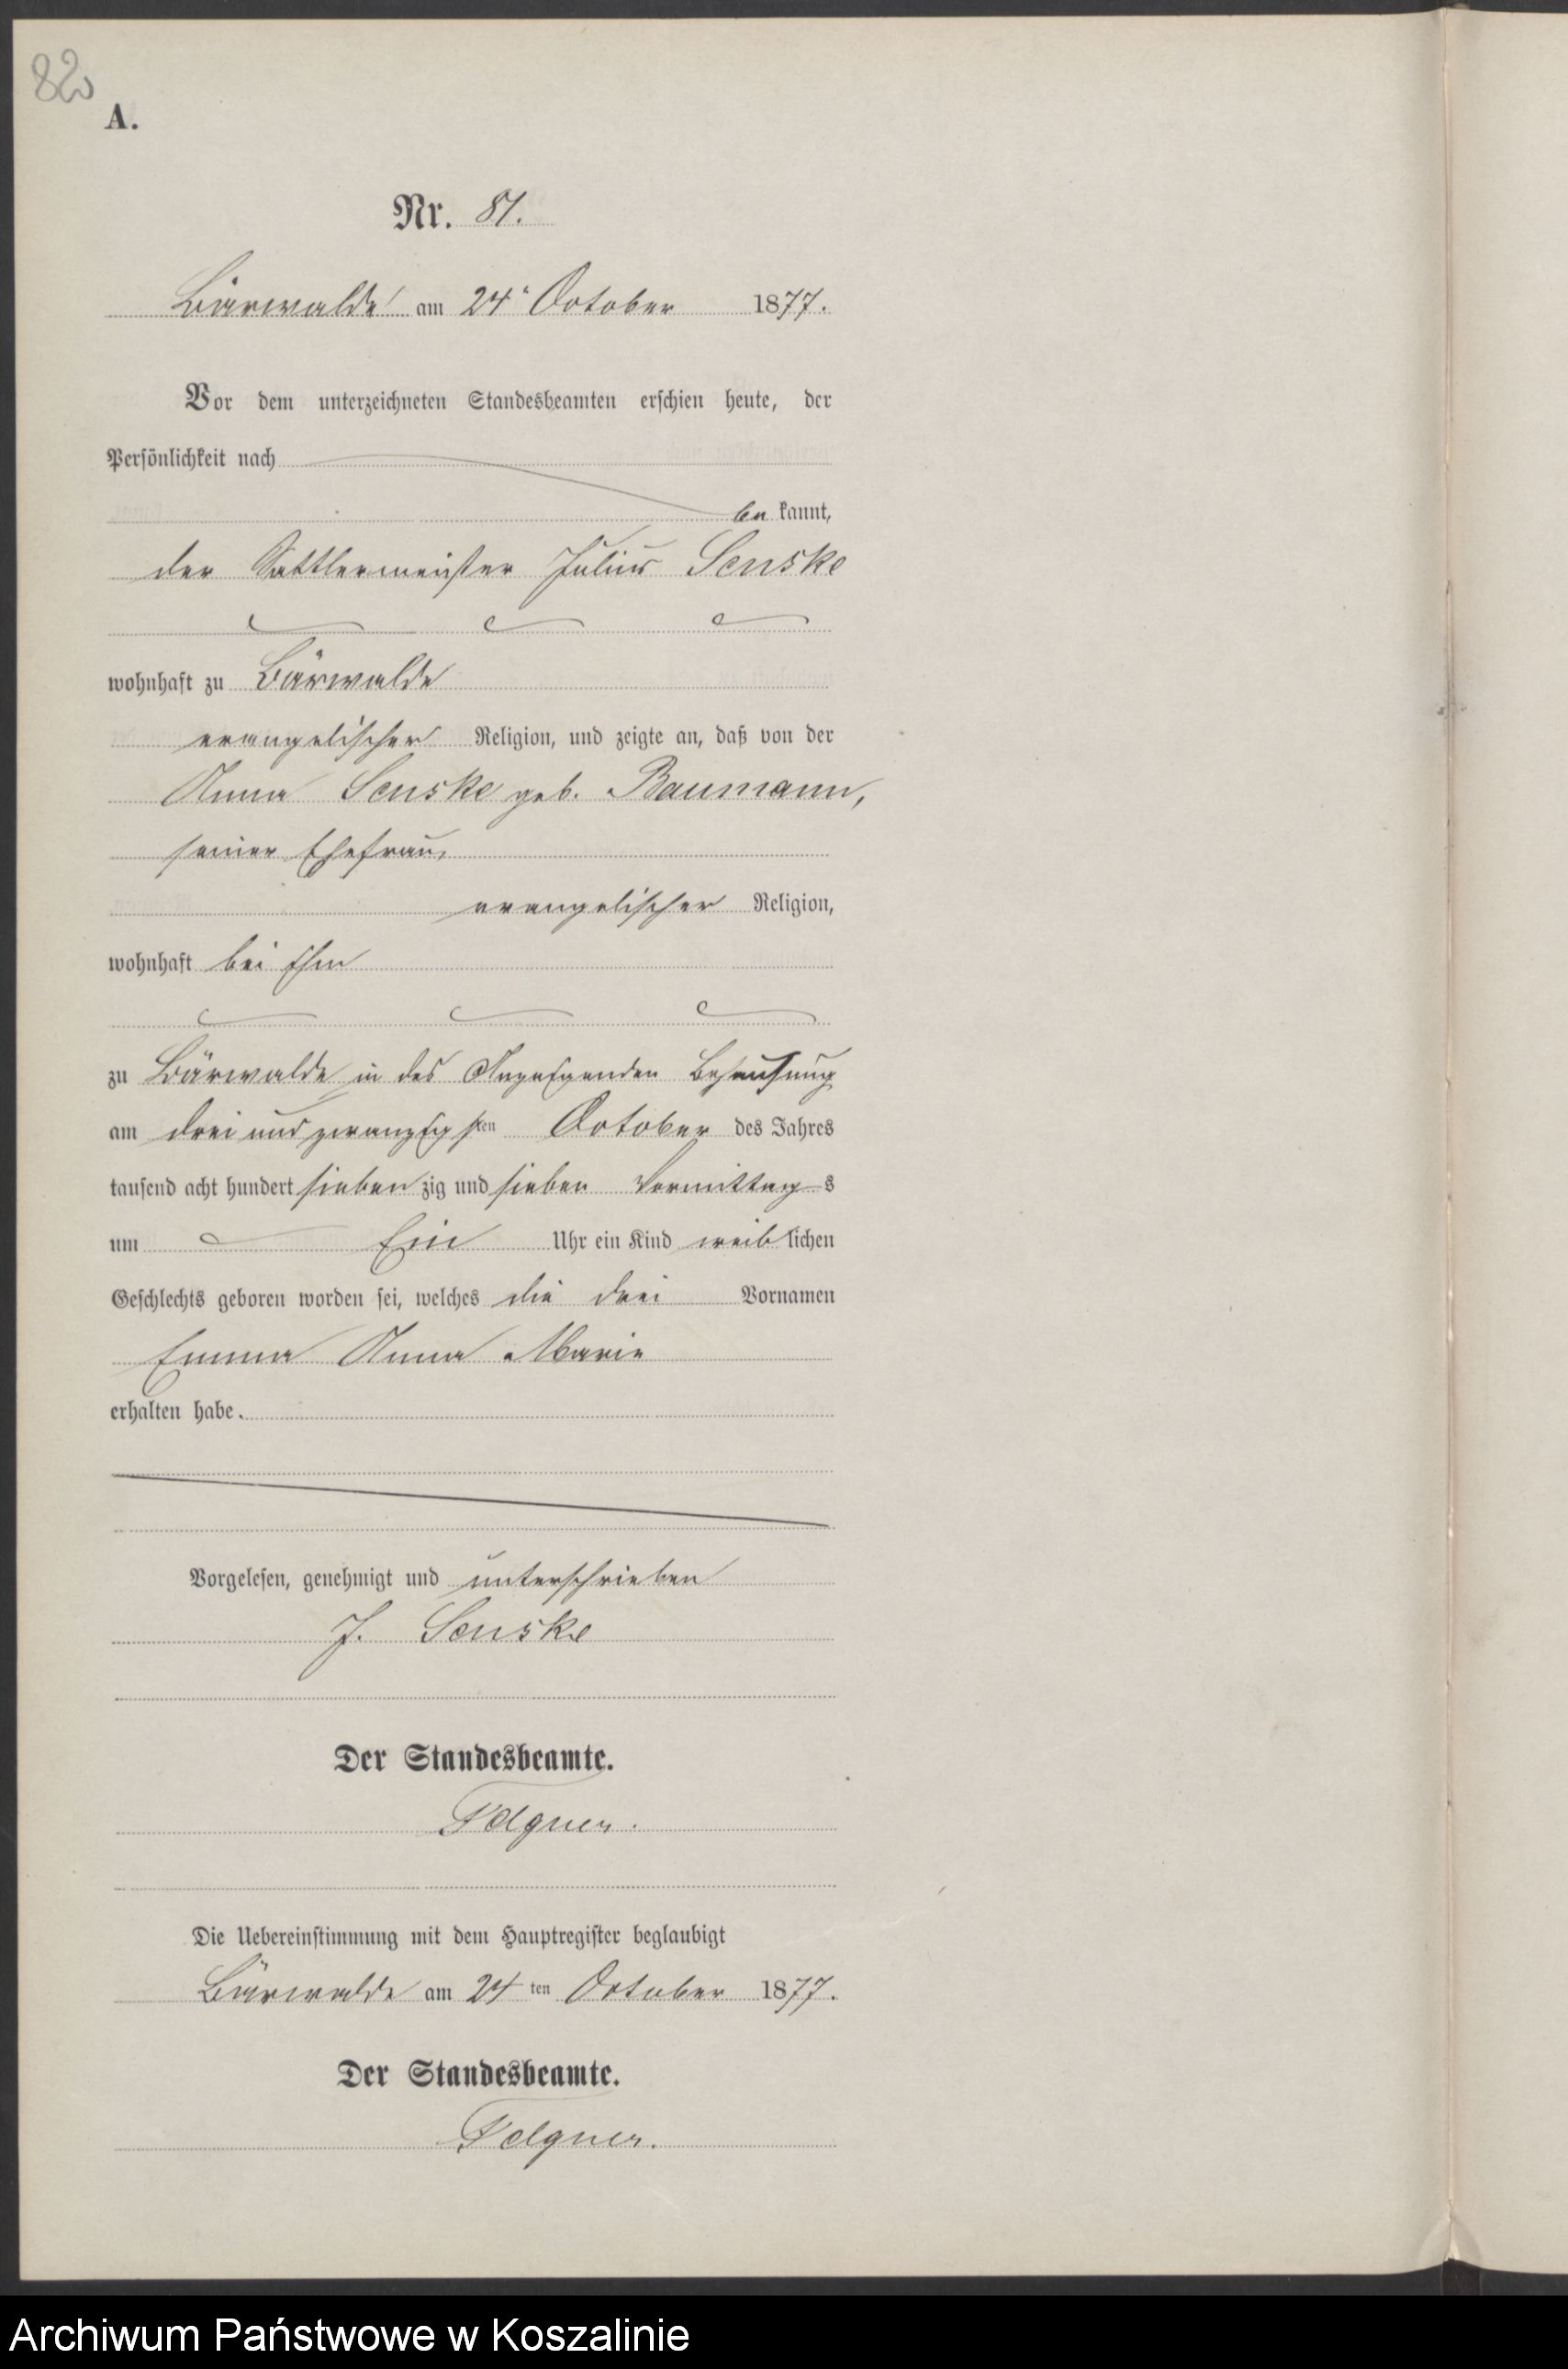 82
A.
Nr. 81.
Bärwalde am 24t October 1877.
Vor dem unterzeichneten Standesbeamten erschien heute, der
Persönlichkeit nach
be kannt,
der Sattlermeister Julius Senske
wohnhaft zu Bärwalde
evangelischer Religion, und zeigte an, daß von der
Anna Senske geb. Baumann,
seiner Ehefrau,
evangelischer Religion,
wohnhaft bei Ihm
zu Bärwalde in des Anzeigenden Behausung
am drei und zwanzigsten October des Jahres
tausend acht hundert sieben zig und sieben Vormittag s
um Ein Uhr ein Kind weib lichen
Geschlechts geboren worden sei, welches die drei Vornamen
Emma Anna Marie
erhalten habe.
Vorgelesen, genehmigt und unterschrieben
J. Senske
Der Standesbeamte.
Felgner.
Die Uebereinstimmung mit dem Hauptregister beglaubigt
Bärwalde am 24 ten October 1877.
Der Standesbeamte.
Felgner.
Archiwum Państwowe w Koszalinie